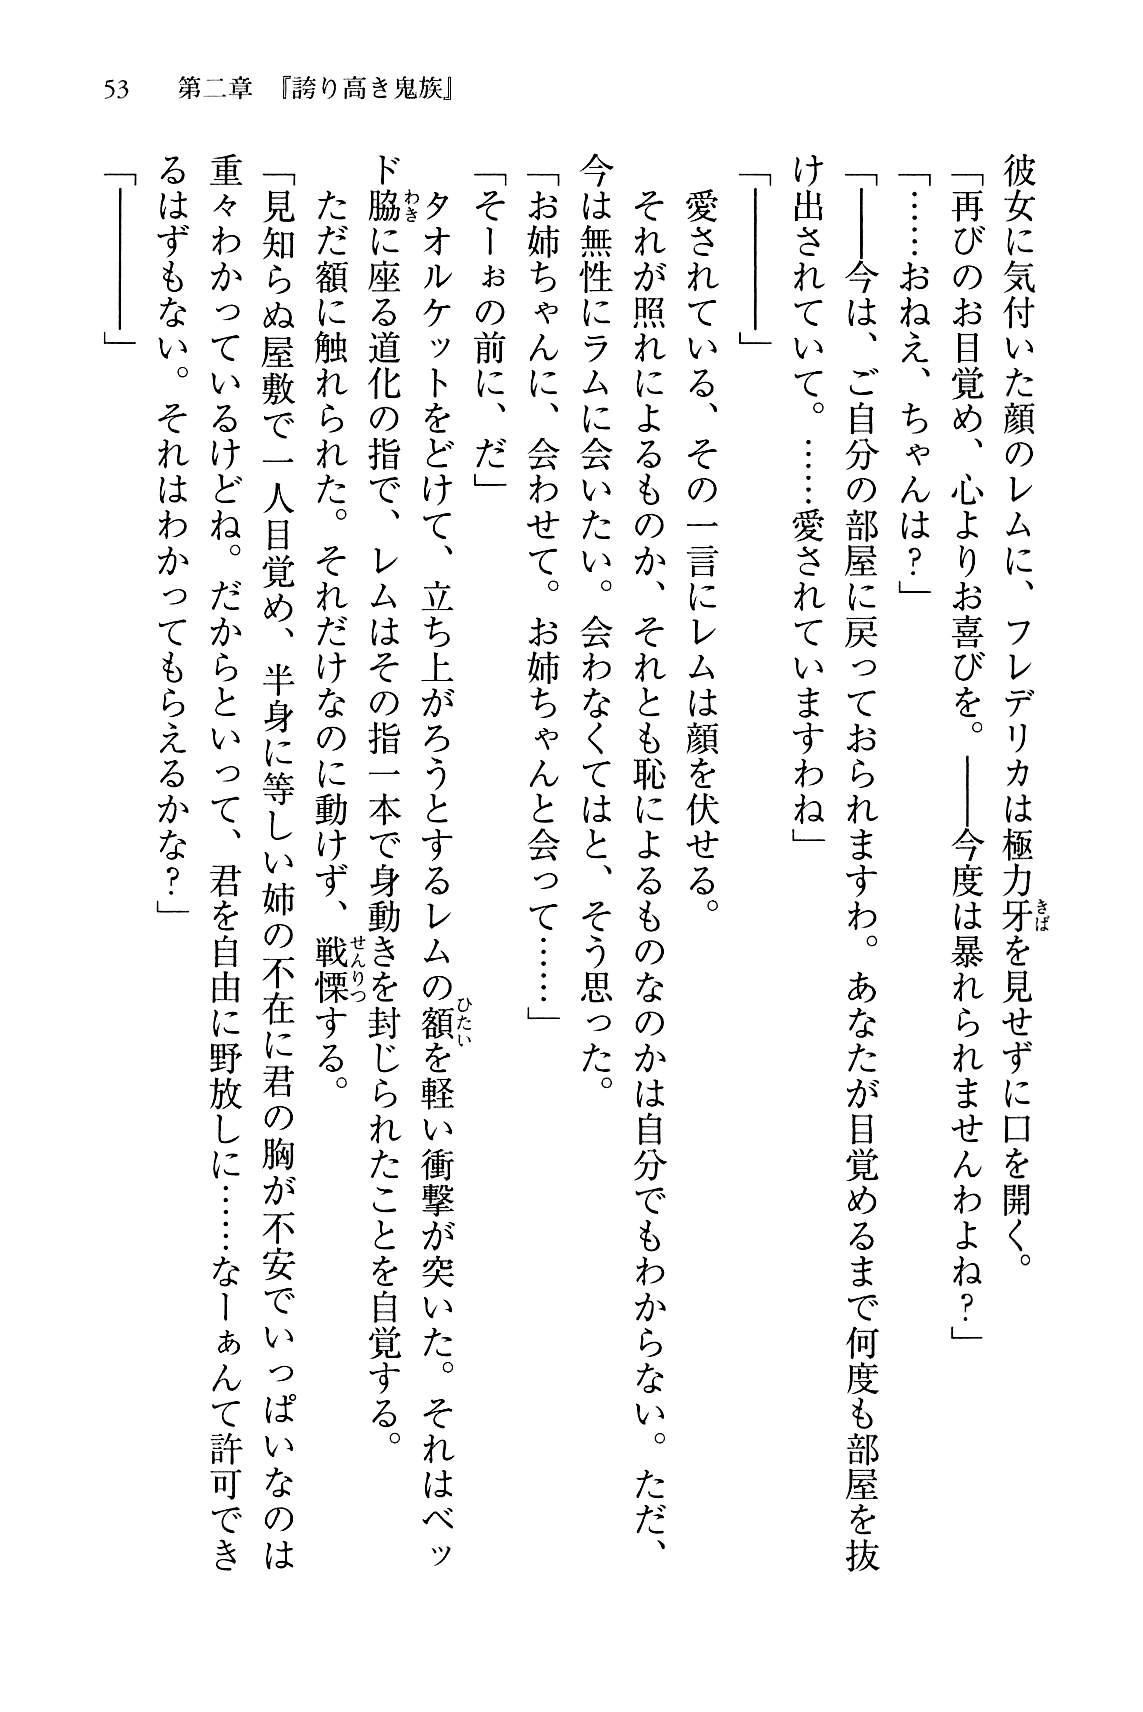 53　第二章　『誇り高き鬼族』
彼女に気付いた顔のレムに、フレデリカは極力牙を見せずに口を開く。
「再びのお目覚め、心よりお喜びを。――今度は暴れられませんわよね？」
「……おねえ、ちゃんは？」
「――今は、ご自分の部屋に戻っておられますわ。あなたが目覚めるまで何度も部屋を抜
け出されていて。……愛されていますわね」
「――――」
愛されている、その一言にレムは顔を伏せる。
それが照れによるものか、それとも恥によるものなのかは自分でもわからない。ただ、
今は無性にラムに会いたい。会わなくてはと、そう思った。
「お姉ちゃんに、会わせて。お姉ちゃんと会って……」
「そーぉの前に、だ」
タオルケットをどけて、立ち上がろうとするレムの額を軽い衝撃が突いた。それはベッ
ド脇に座る道化の指で、レムはその指一本で身動きを封じられたことを自覚する。
ただ額に触れられた。それだけなのに動けず、戦慄する。
「見知らぬ屋敷で一人目覚め、半身に等しい姉の不在に君の胸が不安でいっぱいなのは
重々わかっているけどね。だからといって、君を自由に野放しに……なーぁんて許可でき
るはずもない。それはわかってもらえるかな？」
「――――」
きば
ひたい
わき
せんりつ